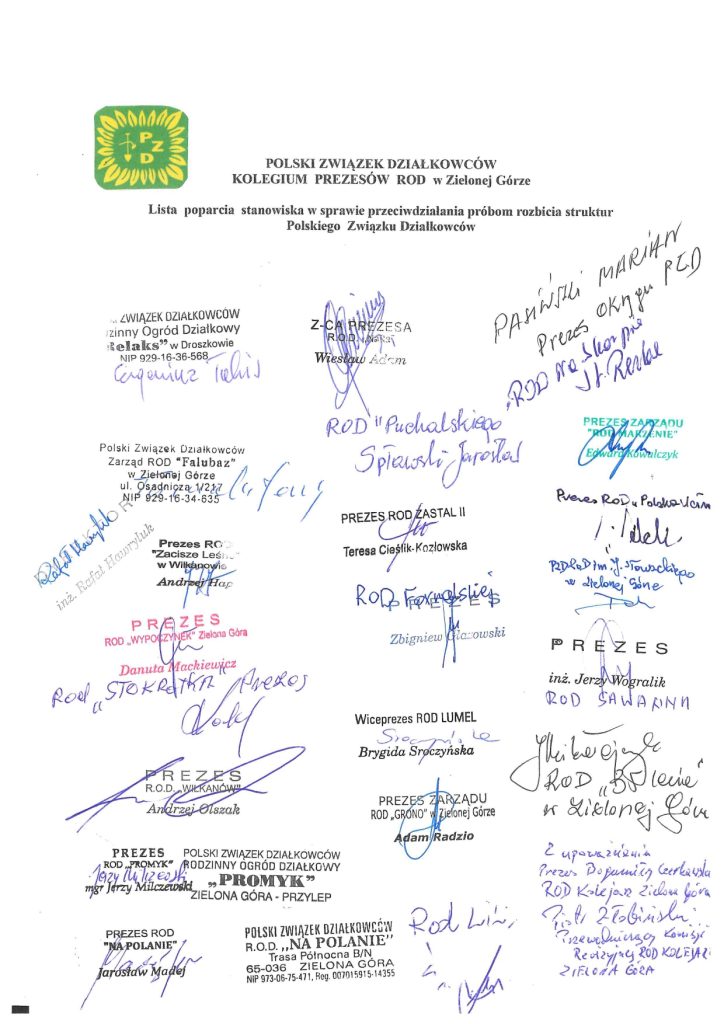 PZD
POLSKI ZWIĄZEK DZIAŁKOWCÓW
KOLEGIUM PREZESÓW ROD w Zielonej Górze
Lista poparcia stanowiska w sprawie przeciwdziałania próbom rozbicia struktur
Polskiego Związku Działkowców
ZWIĄZEK DZIAŁKOWCÓW
zinny Ogród Działkowy
Relaks" w Droszkowie
NIP 929-16-36-568
Z-CA PREZESA
R.O.D.
Wiesław Adam
PASIŃSKI MARIAN
Prezes Okręgu PZD
ROD Na Skarpie
ROD "Puchalskiego
Spławski Jarosław
PREZES ZARZĄDU
"ROD MARZENIE"
Edward Kowalczyk
Polski Związek Działkowców
Zarząd ROD "Falubaz"
w Zielonej Górze
ul. Osadnicza 1/217
NIP 929-16-34-635
Rafał Hawryluk
inż. Rafał Hawryluk
Prezes ROD
"Zacisze Leśne
w Wilkanowie
Andrzej
PREZES ROD ZASTAL II
Teresa Cieślik-Kozłowska
Prezes ROD "Polska
PZD ROD im. J. Słowackiego
w Zielonej Górze
PREZES
ROD „WYPOCZYNEK" Zielona Góra
Danuta Mackiewicz
ROD
PREZES
Zbigniew
PREZES
inż. Jerzy Wogralik
ROD SAWANNA
Rod „STOKROTKA" Prezes
Wiceprezes ROD LUMEL
Brygida Sroczyńska
PREZES
R.O.D. „WILKANÓW"
Andrzej Olszak
PREZES ZARZĄDU
ROD „GRONO" w Zielonej Górze
Adam Radzio
ROD
w Zielonej Górze
PREZES
ROD „PROMYK"
Jerzy Milczewski
mgr Jerzy Milczewski
POLSKI ZWIĄZEK DZIAŁKOWCÓW
RODZINNY OGRÓD DZIAŁKOWY
„PROMYK"
ZIELONA GÓRA - PRZYLEP
Z upoważnienia
Prezes Bogumiły
ROD Kolejarz Zielona Góra
Piotr
Przewodniczący Komisji
Rewizyjnej ROD KOLEJARZ
ZIELONA GÓRA
PREZES ROD
"NA POLANIE"
Jarosław Madej
POLSKI ZWIĄZEK DZIAŁKOWCÓW
R.O.D. „NA POLANIE"
Trasa Północna B/N
65-036 ZIELONA GÓRA
NIP 973-06-75-471, Reg. 007015915-14355
Rod